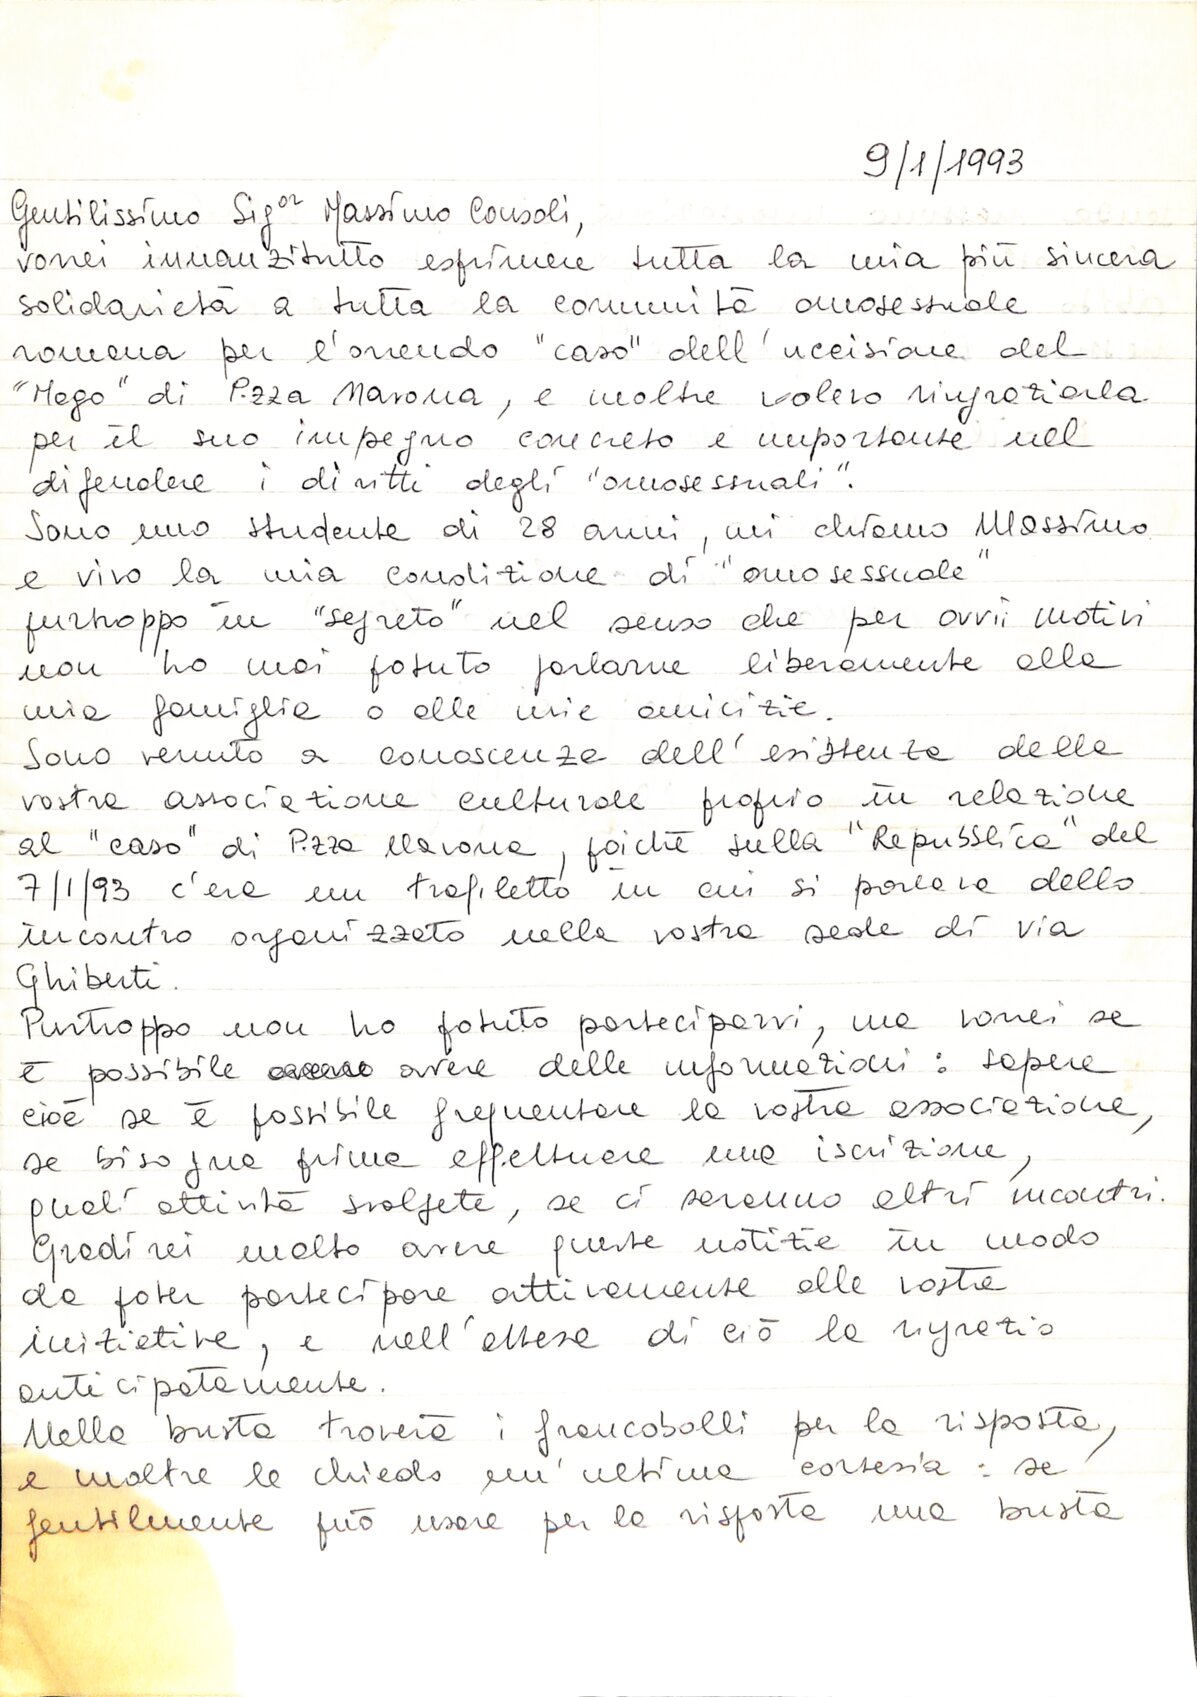 9/1/1993
Gentilissimo Sigor Massimo Consoli,
vorrei innanzitutto esprimere tutta la mia più sincera
solidarietà a tutta la comunità omosessuale
romana per l'orrendo "caso" dell'uccisione del
"Mago" di P.zza Navona, e inoltre volevo ringraziarla
per il suo impegno concreto e importante nel
difendere i diritti degli "omosessuali".
Sono uno studente di 28 anni, mi chiamo Massimo
e vivo la mia condizione di "omosessuale"
purtroppo in "segreto" nel senso che per ovvii motivi
non ho mai potuto parlarne liberamente alla
mia famiglia o alle mie amicizie.
Sono venuto a conoscenza dell'esistenza della
vostra associazione culturale proprio in relazione
al "caso" di P.zza Navona, poichè sulla "Repubblica" del
7/1/93 c'era un trafiletto in cui si parlava dello
incontro organizzato nella vostra sede di via
Ghiberti.
Purtroppo non ho potuto parteciparvi, ma vorrei se
è possibile avere delle informazioni: sapere
cioè se è possibile frequentare la vostra associazione,
se bisogna prima effettuare una iscrizione,
quali attività svolgete, se ci saranno altri incontri.
Gradirei molto avere queste notizie in modo
da poter partecipare attivamente alle vostre
iniziative, e nell'attesa di ciò la ringrazio
anticipatamente.
Nella busta troverà i francobolli per la risposta,
e inoltre le chiedo un'ultima cortesia: se
gentilmente può usare per la risposta una busta